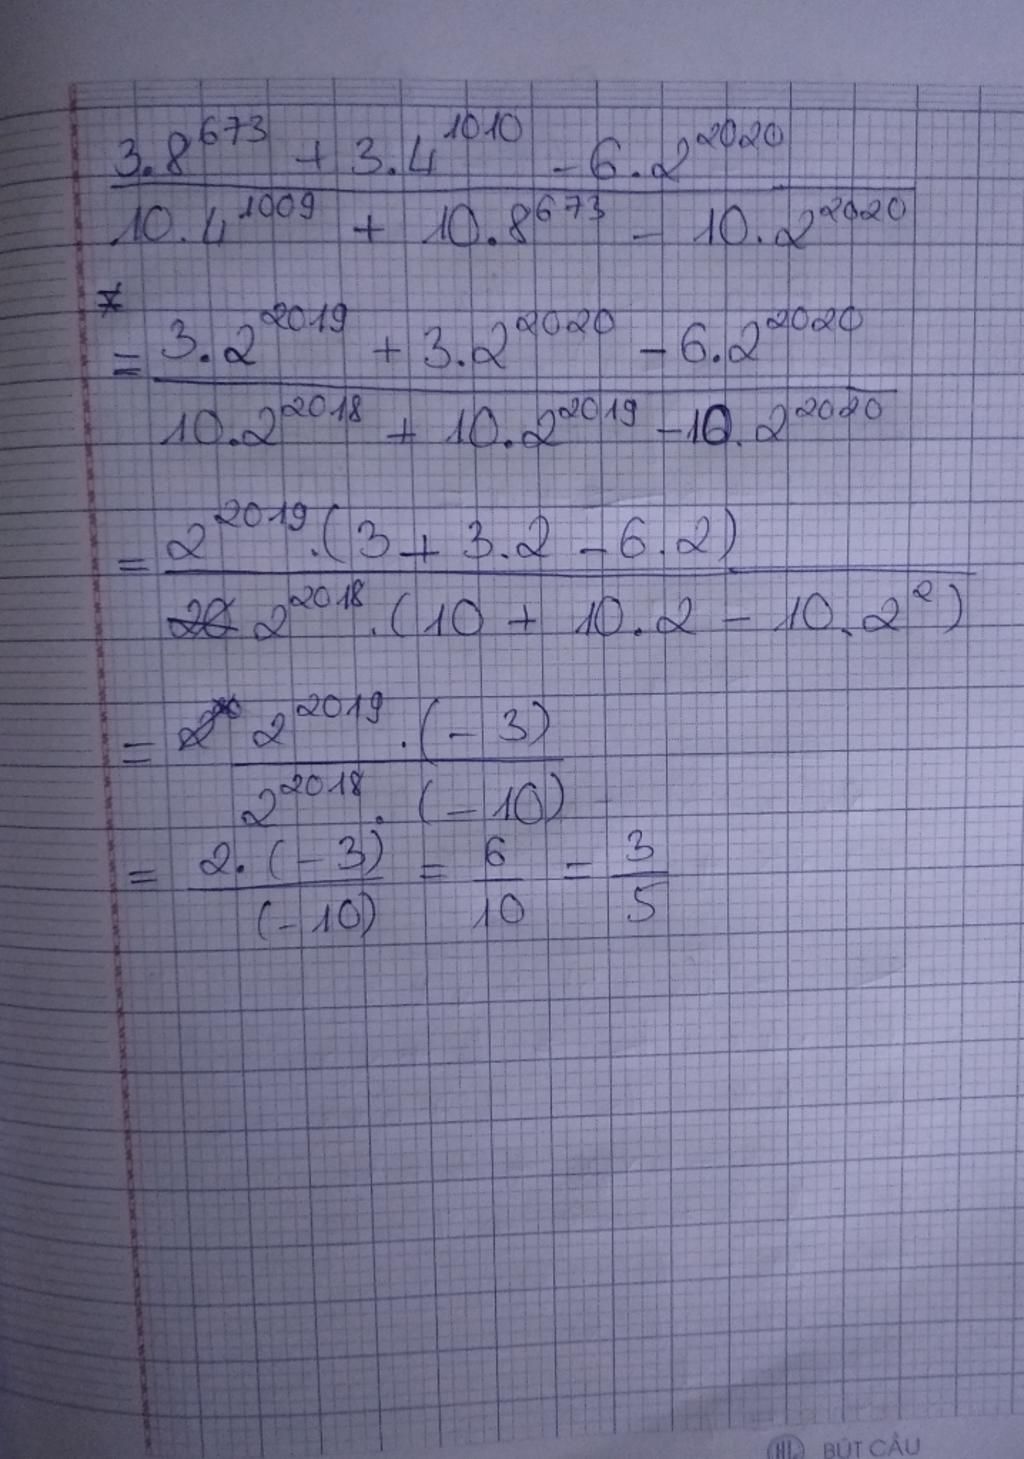 3.8^673 + 3.4^1010 - 6.2^2020
10.4^1009 + 10.8^673 - 10.2^2020
= 3.2^2019 + 3.2^2020 - 6.2^2020
10.2^2018 + 10.2^2019 - 10.2^2020
= 2^2019.(3 + 3.2 - 6.2)
2^2018.(10 + 10.2 - 10.2^2)
= 2^2019.(-3)
2^2018.(-10)
= 2.(-3) = 6 = 3
(-10) 10 5
HL BÚT CÂU